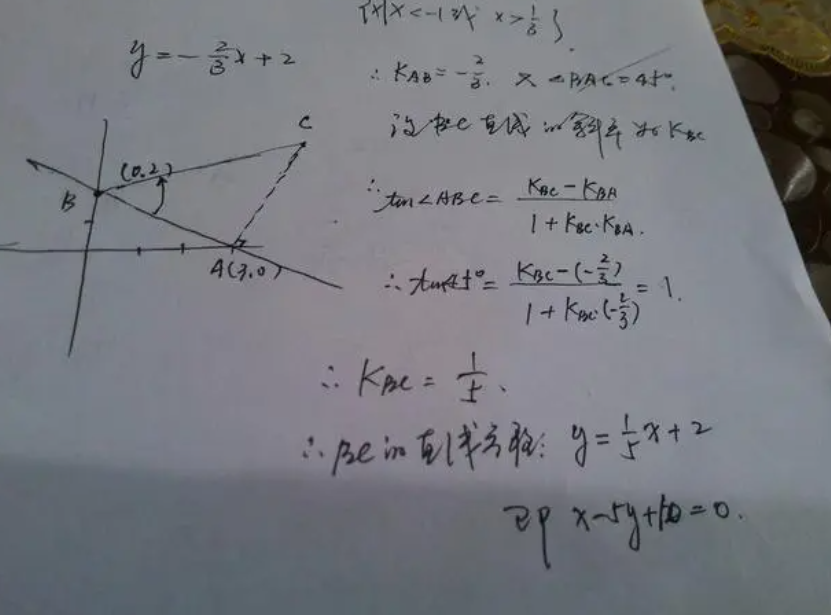 {x|x<-1或 x>1/3}.
y=-2/3x+2
∴ KAB=-2/3. 又∠BAC=45°.
设BC直线的斜率为KBC
∴ tan∠ABC= (KBC-KBA)/(1+KBC·KBA).
∴ tan45°= (KBC-(-2/3))/(1+KBC·(-2/3)) =1.
C
(0.2)
B
A(3.0)
∴ KBC= 1/5.
∴ BC的直线方程: y=1/5x+2
即 x-5y+10=0.